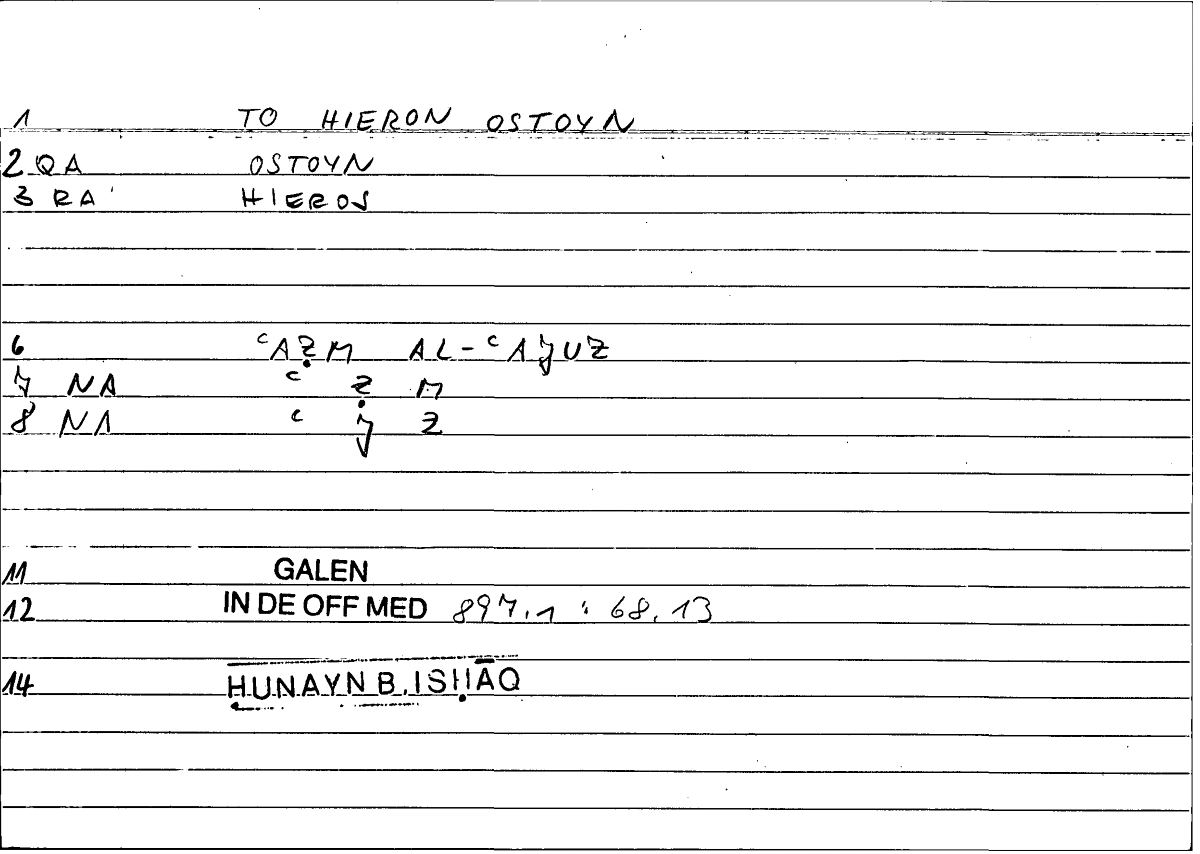 1 TO HIERON OSTOYN
2 QA OSTOYN
3 RA HIEROS
6 ᶜAẒM AL-ᶜAJUZ
7 NA ᶜ Ẓ M
8 NA ᶜ J Z
11 GALEN
12 IN DE OFF MED 897.1 : 68.13
14 ḤUNAYN B. ISḤĀQ